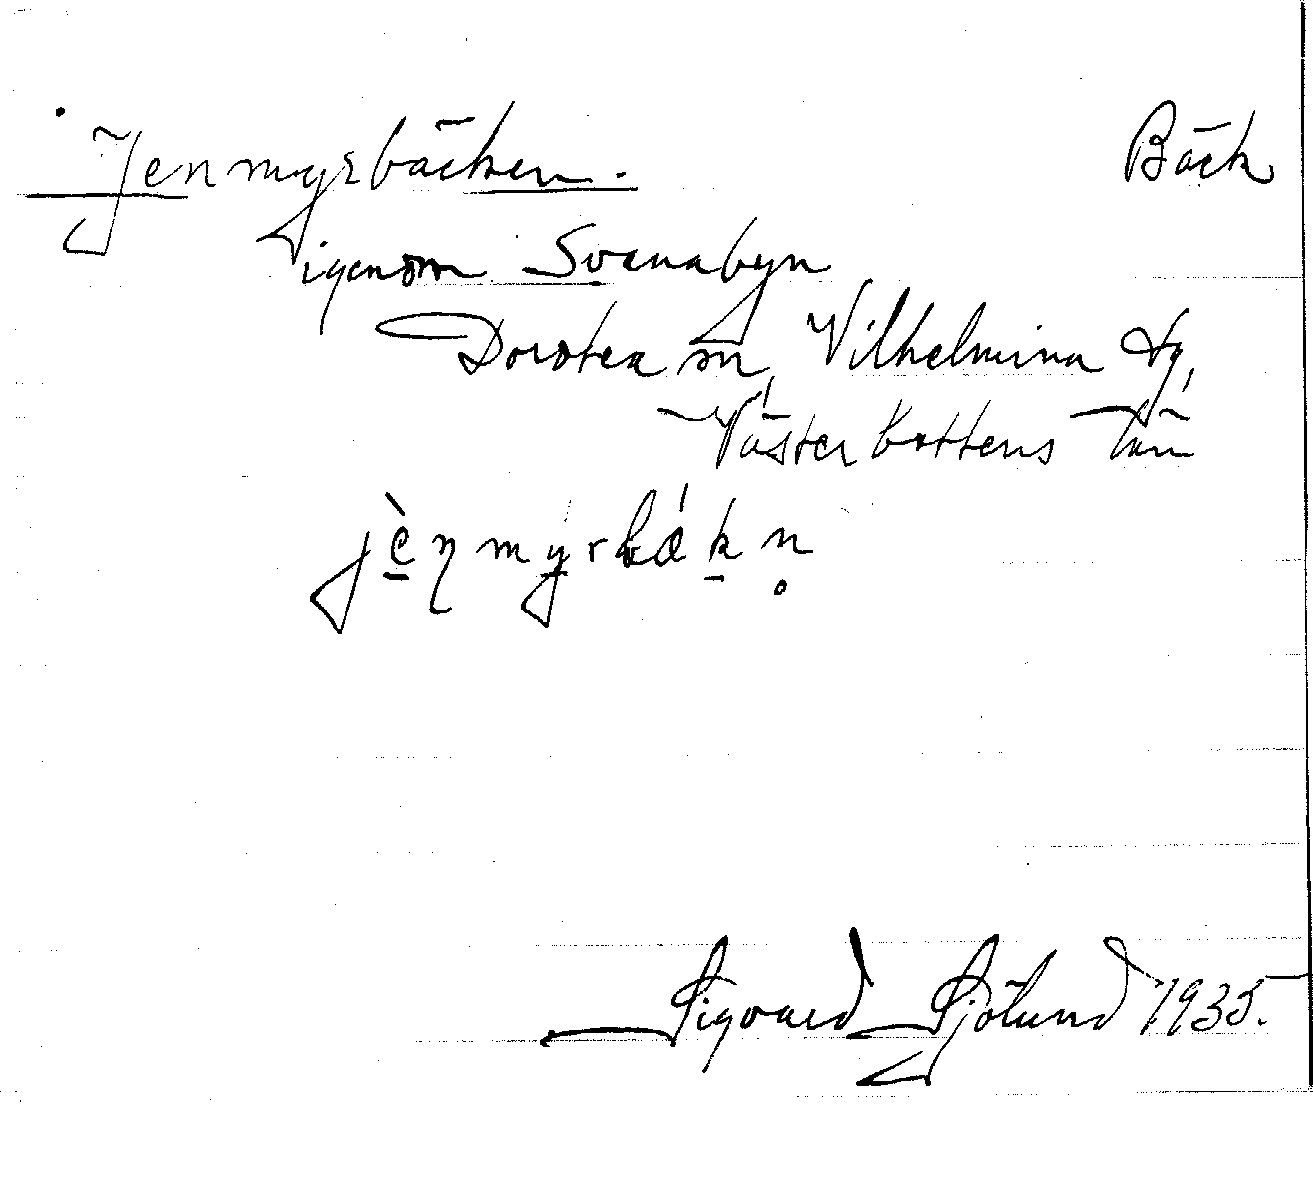 Jenmyrbäcken. Bäck
igenom Svanabyn
Dorotea sn, Vilhelmina tg,
Västerbottens län
jè̱ŋmy̱rbǽḵn̥
Sigvard Sjölund 1935.